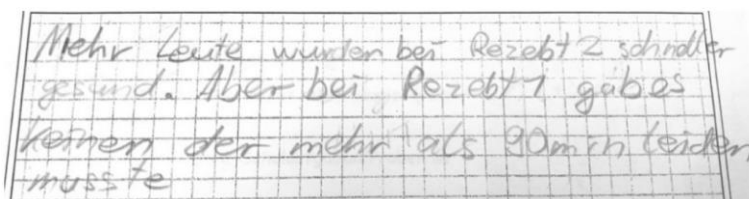 Mehr Leute wurden bei Rezebt 2 schneller
gesund. Aber bei Rezebt 1 gab es
keinen der mehr als 90min leiden
musste